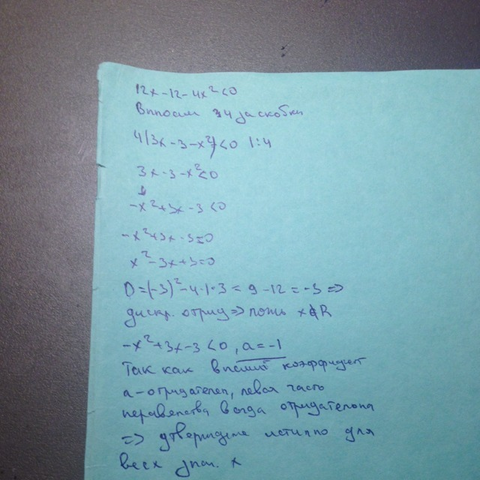 12x-12-4x²<0
Вносим 4 за скобки
4(3x-3-x²)<0 |:4
3x-3-x²<0
-x²+3x-3<0
-x²+3x-3=0
x²-3x+3=0
D=(-3)²-4·1·3=9-12=-3=>
дискр. отриц=> x∉R
-x²+3x-3<0, a=-1
Так как коэффициент
a-отрицателен, левая часть
неравенства всегда отрицательна
=> утверждение истинно для
всех знач. x